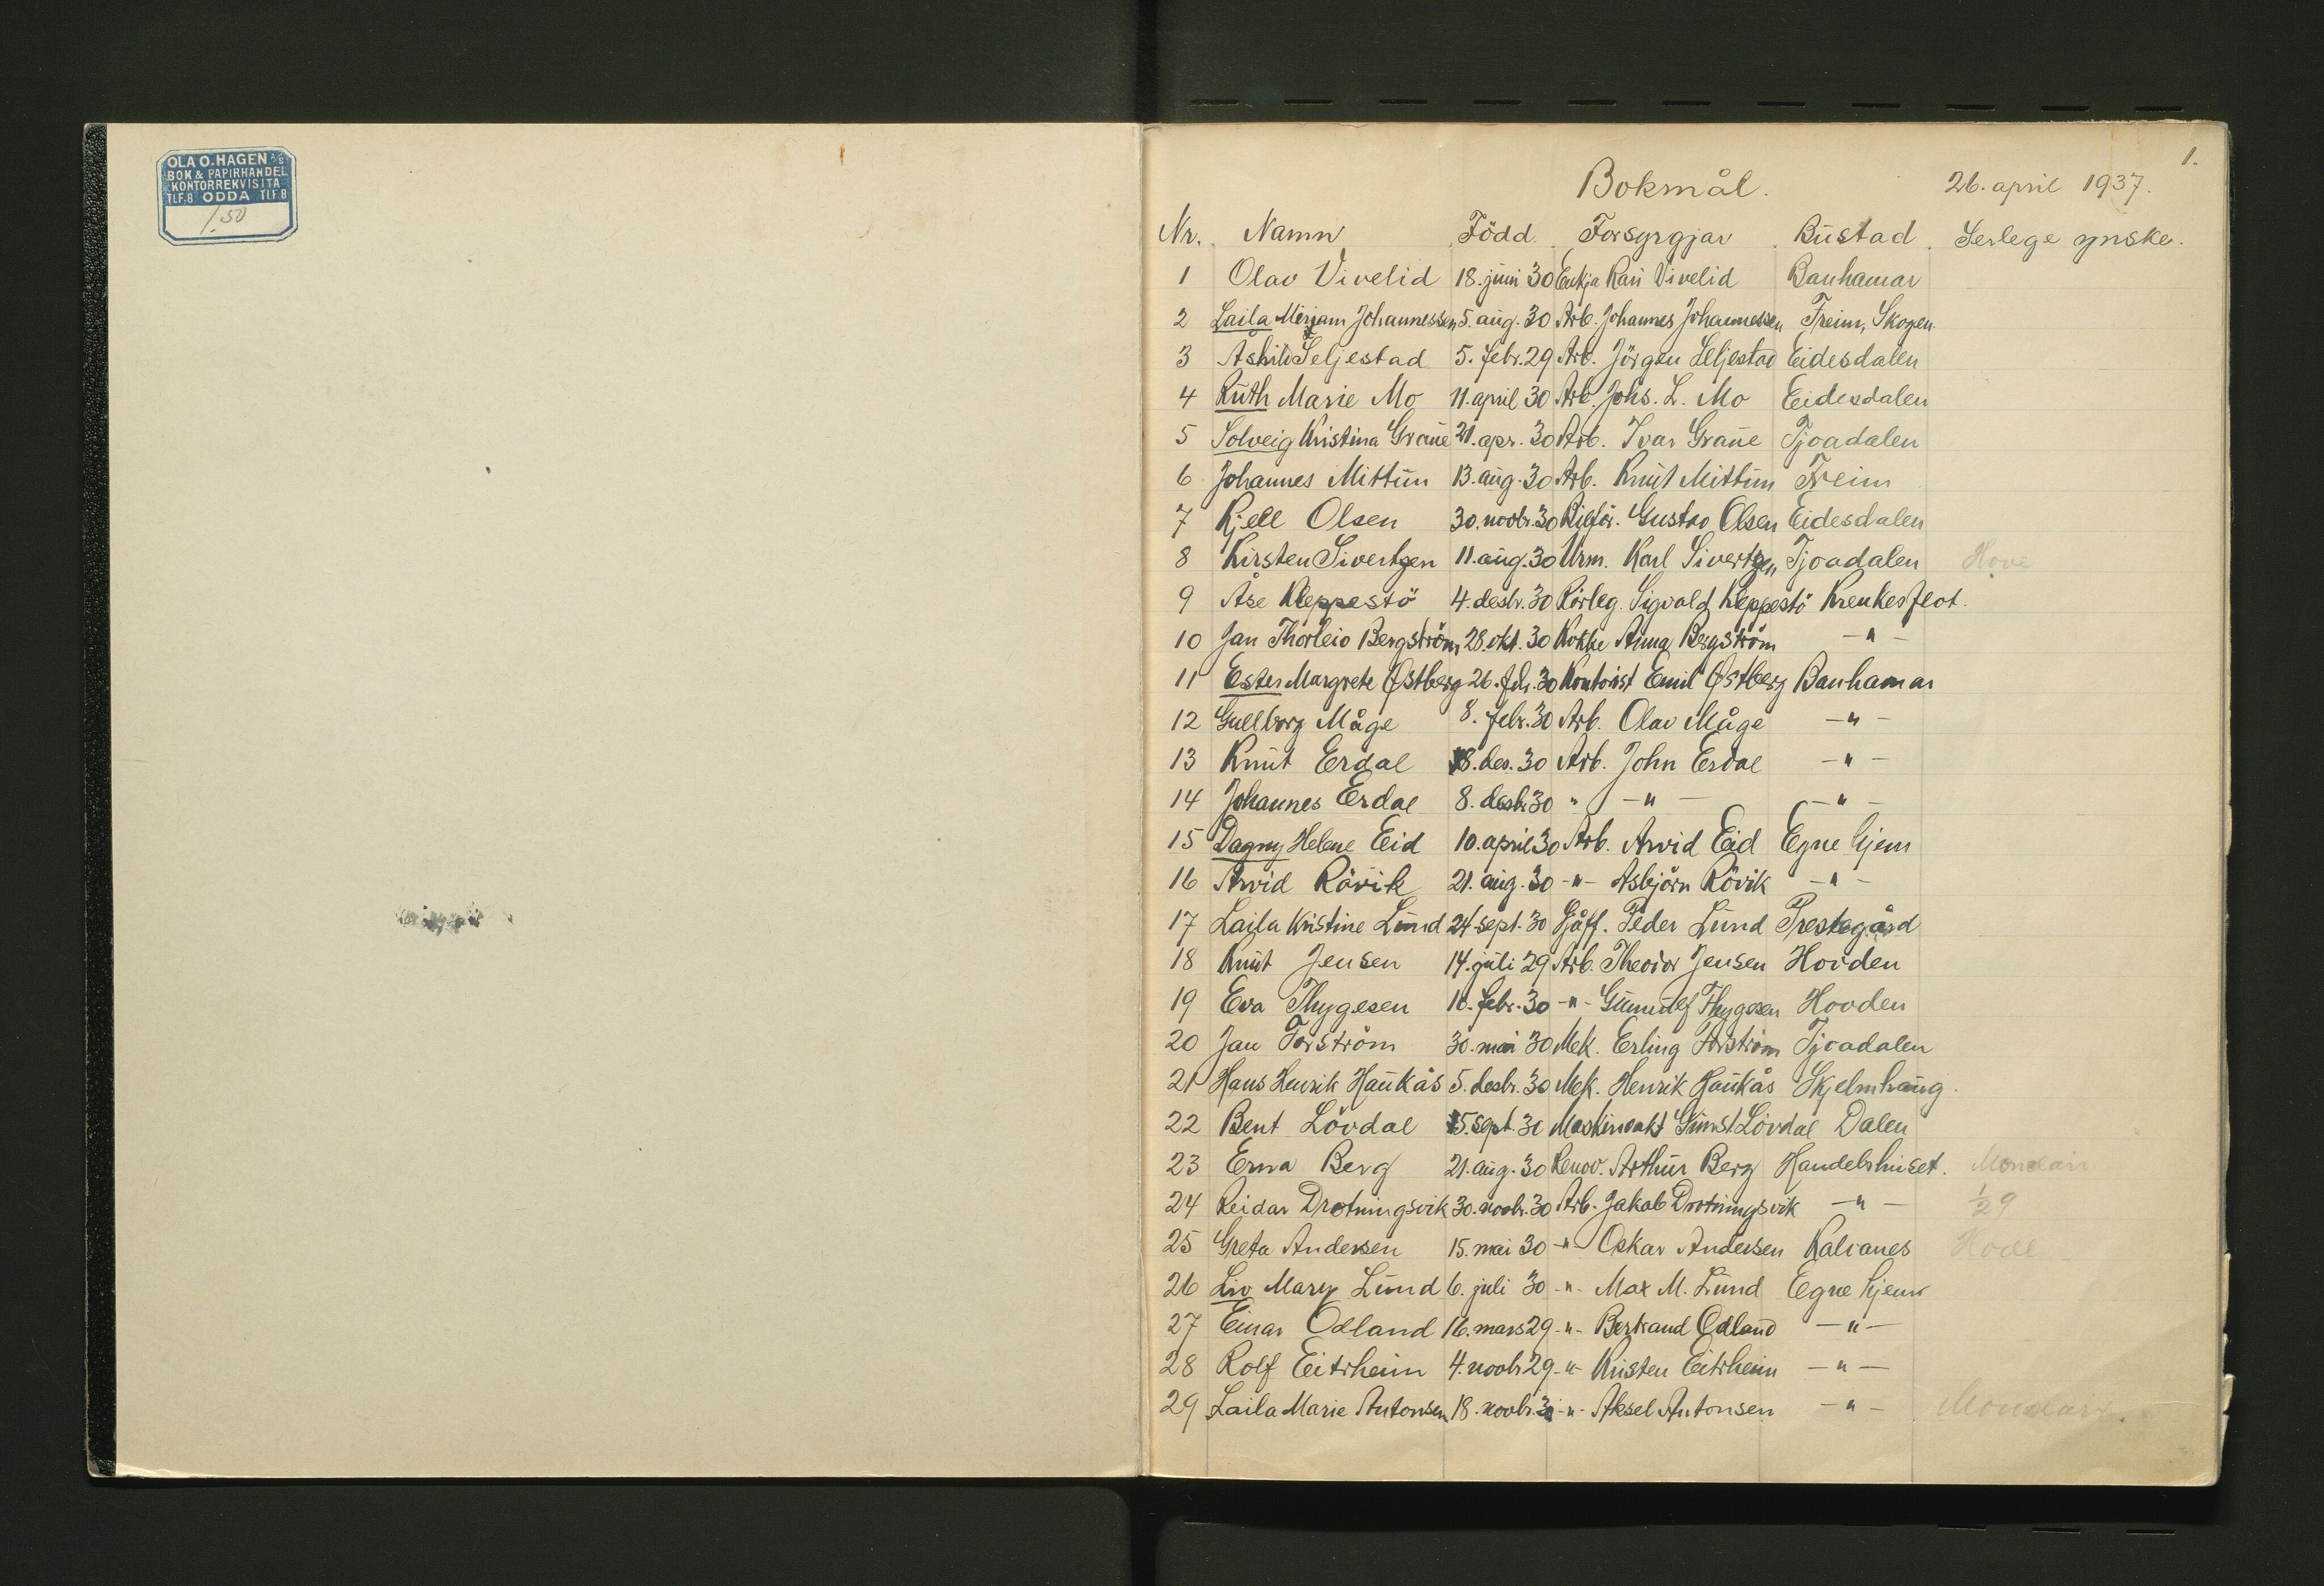 OLA O. HAGEN A/S
BOK & PAPIRHANDEL
KONTORREKVISITA
TLF. 8 ODDA TLF. 8
1.50
1.
Bokmål. 26. april 1937.
Nr. Namn Född. Forsyrgjar Bustad Serlege ynske.
1 Olav Vivelid 18. juni 30 Enkja Kari Vivelid Banhamar
2 Laila Mirjam Johannessen 5. aug. 30 Arb. Johannes Johannessen Freim, Skogen
3 Åshild Seljestad 5. febr. 29 Arb. Jörgen Seljestad Eidesdalen
4 Ruth Marie Mo 11. april 30 Arb. Johs. L. Mo Eidesdalen
5 Solveig Kristina Graue 21. apr. 30 Arb. Ivar Graue Tjoadalen
6 Johannes Mittun 13. aug. 30 Arb. Knut Mittun Freim
7 Kjell Olsen 30. novbr. 30 Bilför. Gustav Olsen Eidesdalen
8 Kirsten Sivertzen 11. aug. 30 Urm. Karl Sivertzen Tjoadalen Hove
9 Åse Kleppestö 4. desbr. 30 Rörleg. Sigvald Kleppestö Krenkesflot.
10 Jan Thorleiv Bergström 28. okt. 30 Kokke Anna Bergström -"-
11 Ester Margrete Østberg 26. febr. 30 Kontorist Emil Østberg Banhamar
12 Gullborg Måge 8. febr. 30 Arb. Olav Måge -"-
13 Knut Erdal 8. des. 30 Arb. John Erdal -"-
14 Johannes Erdal 8. desbr. 30 " -"- -"-
15 Dagny Helene Eid 10. april 30 Arb. Arvid Eid Egne hjem
16 Arvid Rövik 21. aug. 30 -"- Asbjörn Rövik -"-
17 Laila Kristine Lund 24. sept. 30 Sjåff. Peder Lund Prestegård
18 Knut Jensen 14. juli 29 Arb. Theodor Jensen Hovden
19 Eva Thygesen 10. febr. 30 -"- Gunnulf Thygesen Hovden
20 Jan Forström 30. mai 30 Mek. Erling Forström Tjoadalen
21 Hans Henrik Haukås 5. desbr. 30 Mek. Henrik Haukås Skjelmhaug.
22 Bent Lövdal 5. sept. 30 Maskinvakt Lövdal Dalen
23 Erna Berg 21. aug. 30 Renov. Arthur Berg Handelshuset.
24 Reidar Drotningsvik 30. novbr. 30 Arb. Jakob Drotningsvik -"- 1/29
25 Greta Andersen 15. mai 30 -"- Oskar Andersen Kalvanes
26 Liv Mary Lund 6. juli 30 -"- Max M. Lund Egne hjem
27 Einar Odland 16. mars 29 -"- Bertrand Odland -"-
28 Rolf Eitrheim 4. novbr 29 -"- Kristen Eitrheim -"-
29 Laila Marie Antonsen 18. novbr. 30 -"- Aksel Antonsen -"-